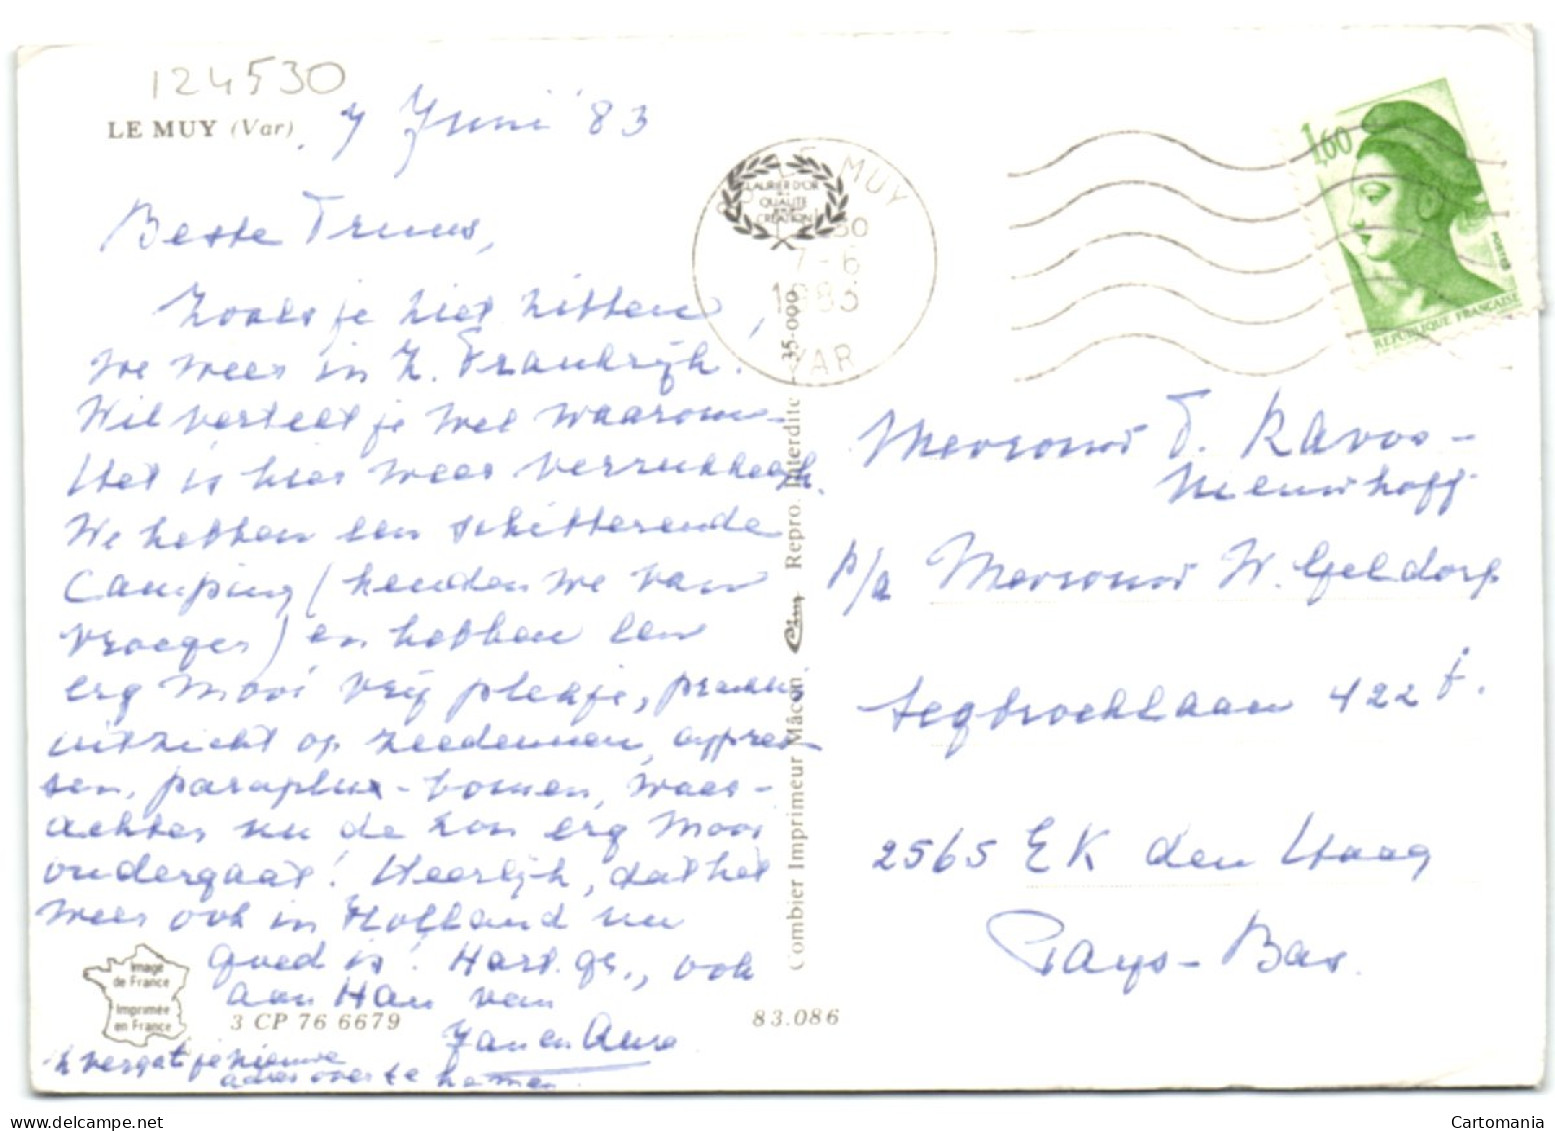 124530
LE MUY (Var)
7 Juni '83
Beste Truus,
Zoals je ziet zitten
we weer in Z. Frankrijk.
Wil vertelt je wel waarom.
Het is hier weer verrukkelijk.
We hebben een schitterende
Camping (kenden we van
vroeger) en hebben een
erg mooi vrij plekje, prachtig
uitzicht op zeedennen, cypres-
sen, paraplu-bomen, waar-
achter nu de zon erg mooi
ondergaat! Heerlijk, dat het
weer ook in Holland nu
goed is! Hart. gr., ook
aan Han van
Jan en
'k vergat je nieuwe
adres over te nemen.
Image
de France
Imprimée
en France
3 CP 76 6679
83.086
Combier Imprimeur Mâcon
Cim
Repro. Interdite
35-000
LAURIER D'OR
QUALITÉ
CREATION
LE MUY
30
7-6
1983
VAR
1,60
POSTES
REPUBLIQUE FRANÇAISE
Mevrouw T. Ravos-
Nieuwhoff
p/a Mevrouw W. Geldorp
Segbroeklaan 422 f.
2565 EK den Haag
Pays-Bas.
Cartomania